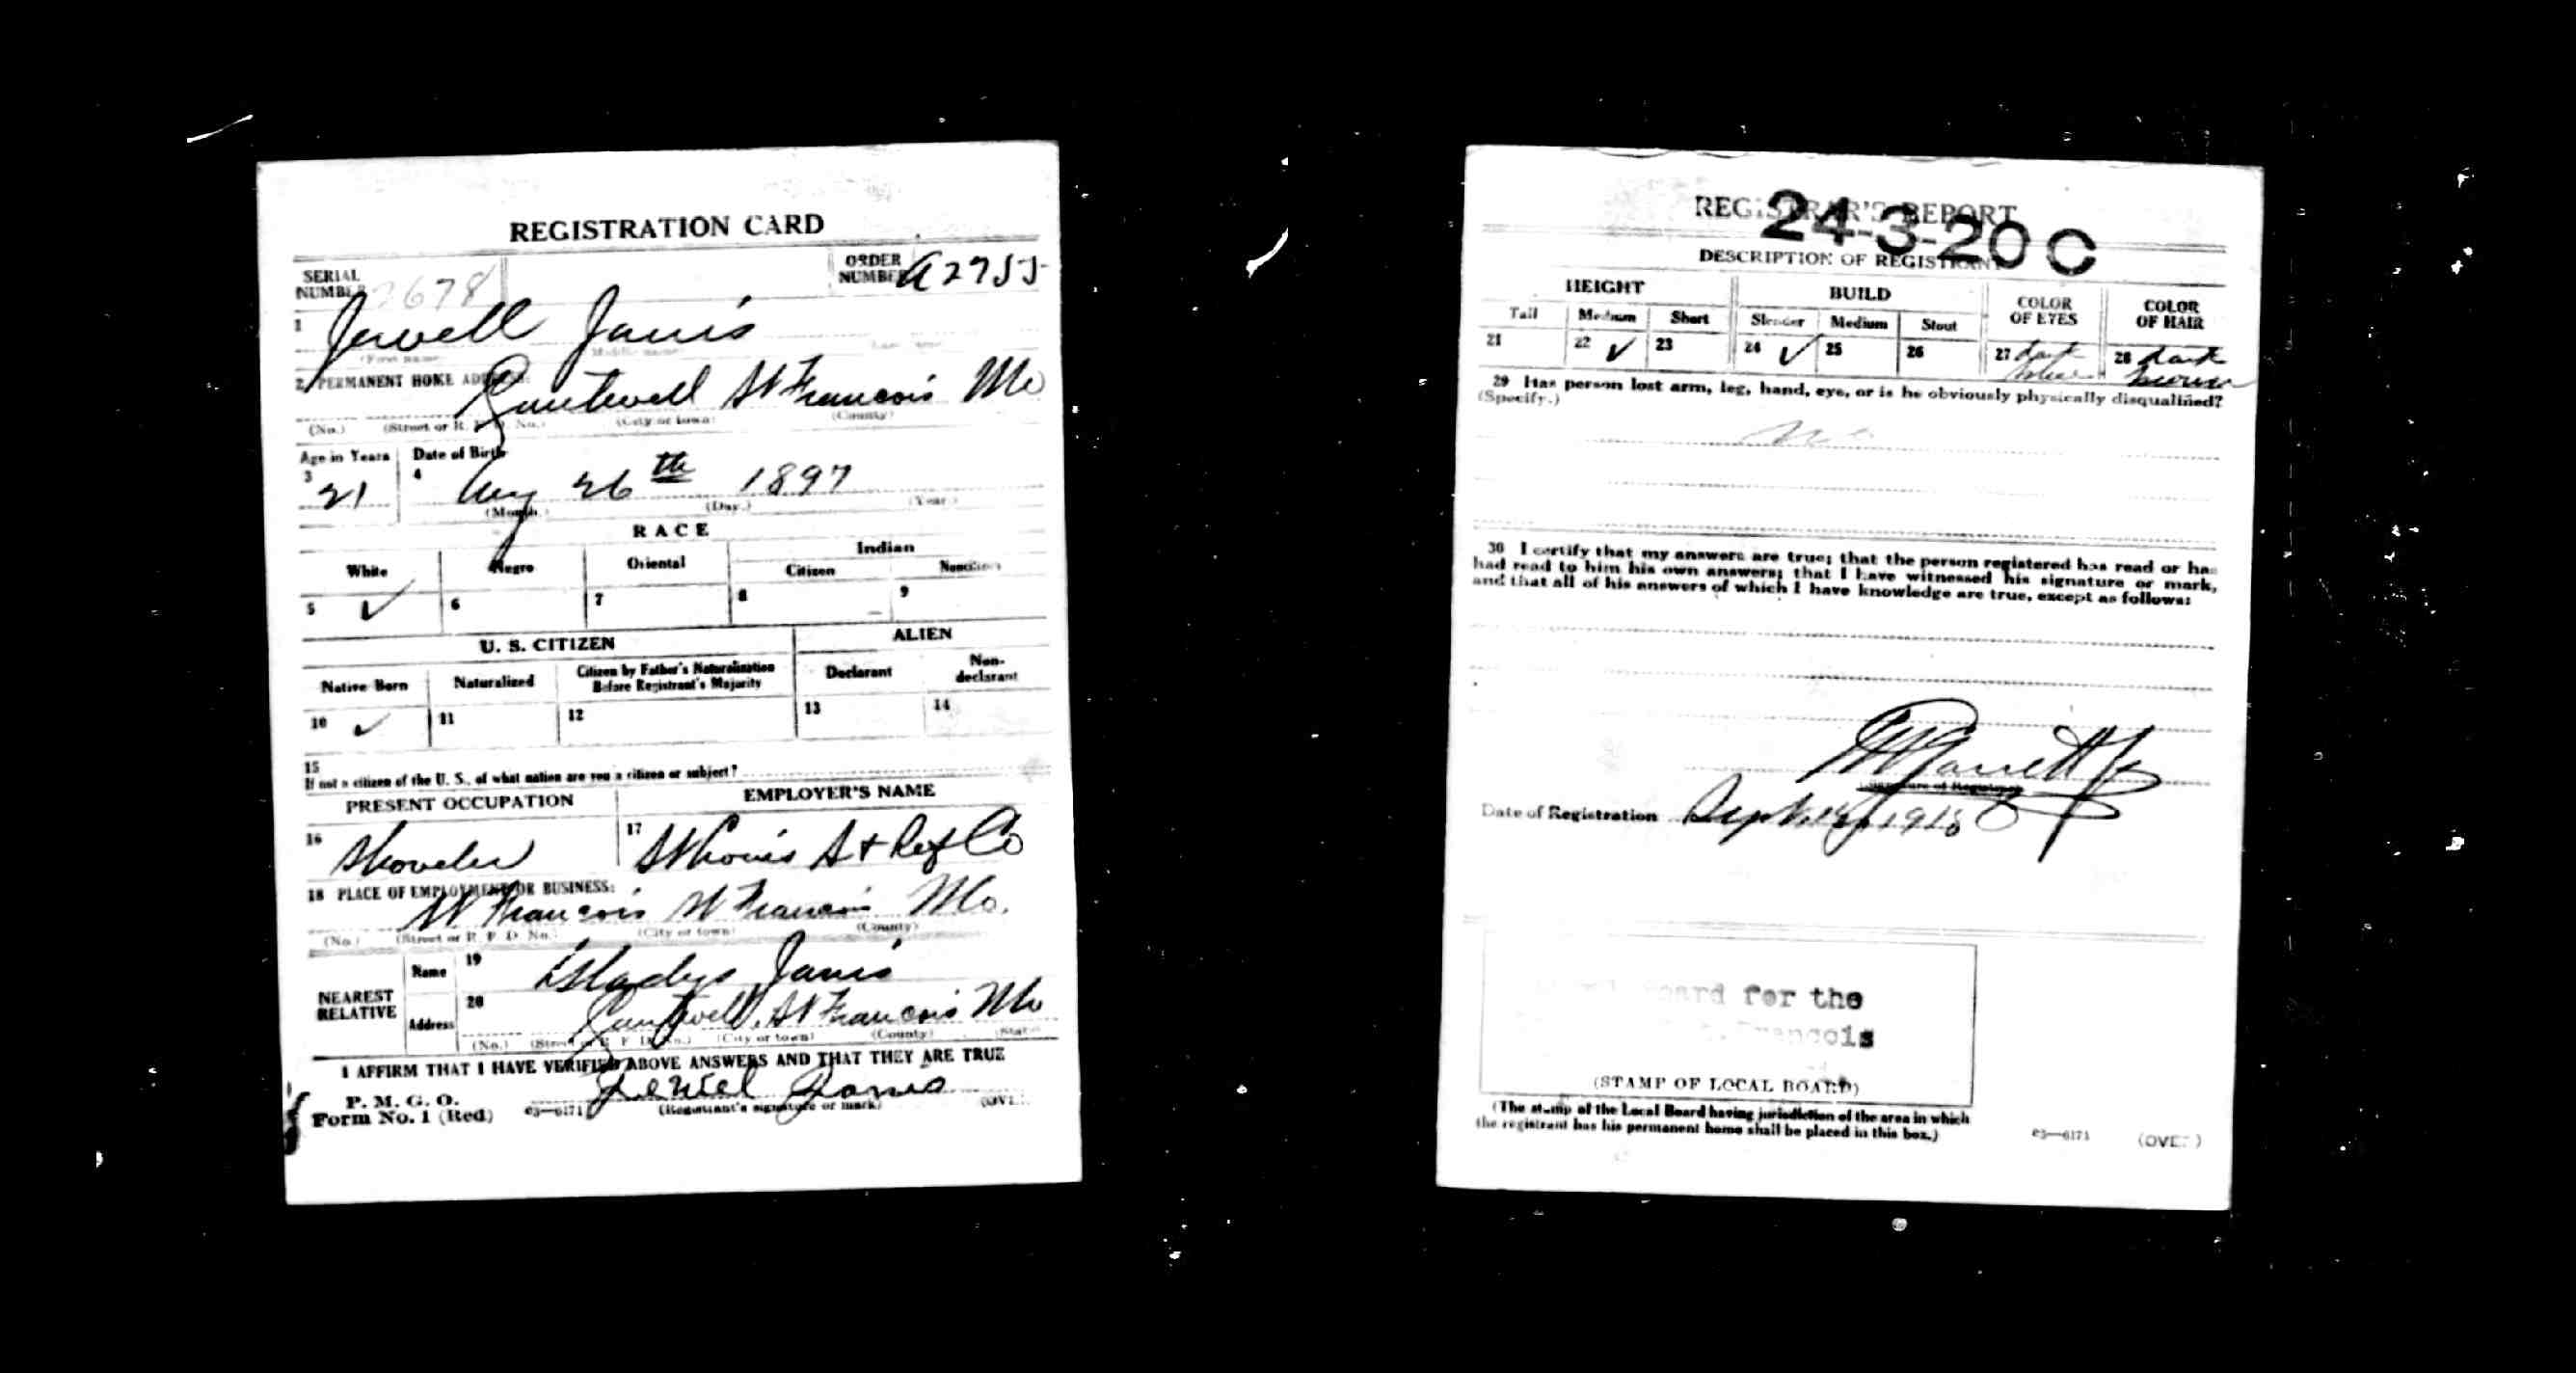 REGISTRATION CARD
SERIAL NUMBER 2678
ORDER NUMBER A2755
1 Jewell Janis
(First name) (Middle name) (Last name)
2 PERMANENT HOME ADDRESS:
Cantwell St Francois Mo
(No.) (Street or R. F. D. No.) (City or town) (County)
Age in Years Date of Birth
3 21 4 Aug 26th 1897
(Month.) (Day.) (Year.)
RACE
White Negro Oriental Indian
Citizen Noncitizen
5 ✓ 6 7 8 9
U. S. CITIZEN ALIEN
Native Born Naturalized Citizen by Father's Naturalization Before Registrant's Majority Declarant Non-declarant
10 ✓ 11 12 13 14
15
If not a citizen of the U. S., of what nation are you a citizen or subject?
PRESENT OCCUPATION EMPLOYER'S NAME
16 Shoveler 17 St Louis S & Ref Co
18 PLACE OF EMPLOYMENT OR BUSINESS:
St Francois St Francois Mo.
(No.) (Street or R. F. D. No.) (City or town) (County)
NEAREST RELATIVE
Name 19 Gladys Janis
Address 20 Cantwell, St Francois Mo
(No.) (Street or R. F. D. No.) (City or town) (County) (State)
I AFFIRM THAT I HAVE VERIFIED ABOVE ANSWERS AND THAT THEY ARE TRUE
P. M. G. O.
Form No. 1 (Red) 03—6171 Jewel Janis
(Registrant's signature or mark) (OVER)
REGISTRAR'S REPORT
24-3-20 C
DESCRIPTION OF REGISTRANT
HEIGHT BUILD COLOR OF EYES COLOR OF HAIR
Tall Medium Short Slender Medium Stout
21 22 ✓ 23 24 ✓ 25 26 27 dark 28 dark brown
29 Has person lost arm, leg, hand, eye, or is he obviously physically disqualified?
(Specify.)
No
30 I certify that my answers are true; that the person registered has read or has
had read to him his own answers; that I have witnessed his signature or mark,
and that all of his answers of which I have knowledge are true, except as follows:
Date of Registration Sept 1918
Board for the
Francois
(STAMP OF LOCAL BOARD)
(The stamp of the Local Board having jurisdiction of the area in which
the registrant has his permanent home shall be placed in this box.)
03—6171 (OVER)